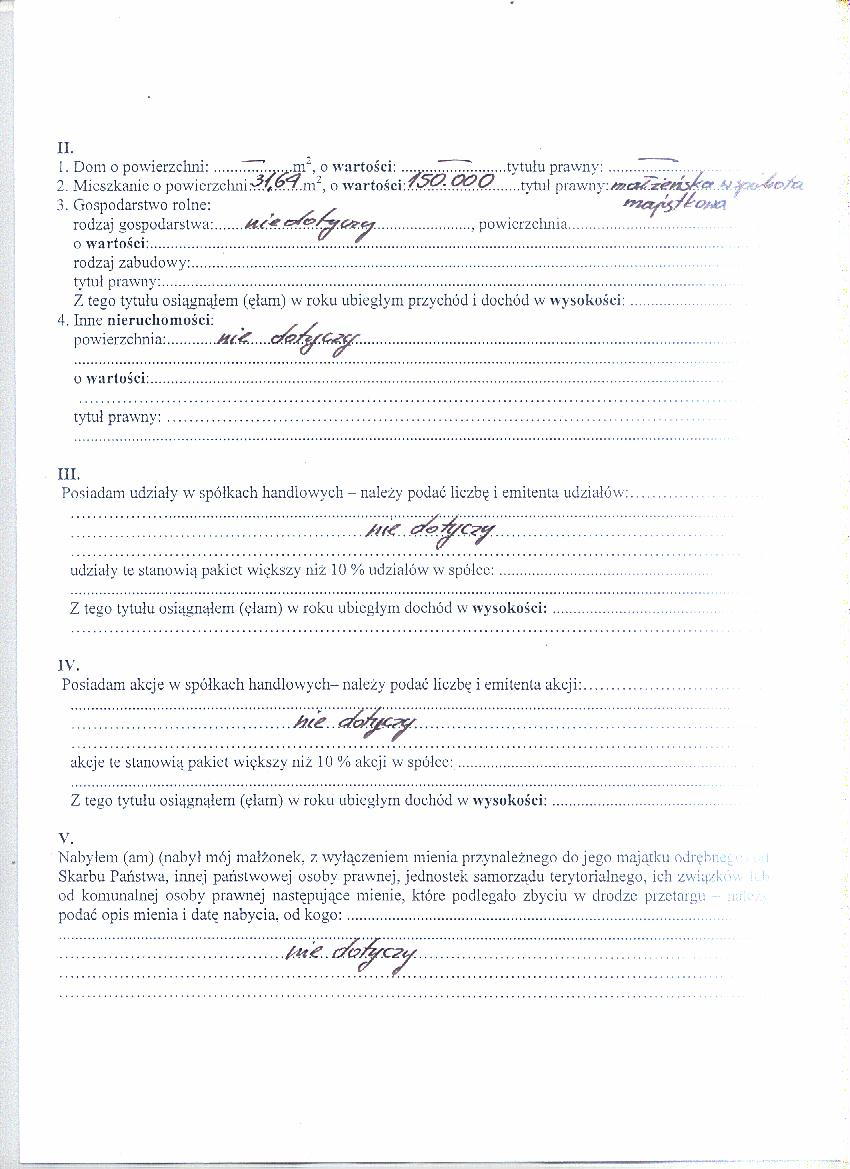 II.
1. Dom o powierzchni: .........—.......m², o wartości: ......—........tytułu prawny: .........—.........
2. Mieszkanie o powierzchni:31,64.m², o wartości:150.000......tytuł prawny:małżeńska wspólnota
majątkowa
3. Gospodarstwo rolne:
rodzaj gospodarstwa:......nie dotyczy......................, powierzchnia..............................
o wartości:..............................
rodzaj zabudowy:..............................
tytuł prawny:..............................
Z tego tytułu osiągnąłem (ęłam) w roku ubiegłym przychód i dochód w wysokości: ....................
4. Inne nieruchomości:
powierzchnia:...........nie dotyczy..............................
o wartości:..............................
tytuł prawny: ..............................
III.
Posiadam udziały w spółkach handlowych – należy podać liczbę i emitenta udziałów:....................
nie dotyczy
udziały te stanowią pakiet większy niż 10 % udziałów w spółce: ..............................
Z tego tytułu osiągnąłem (ęłam) w roku ubiegłym dochód w wysokości: ..............................
IV.
Posiadam akcje w spółkach handlowych– należy podać liczbę i emitenta akcji:..............................
nie dotyczy
akcje te stanowią pakiet większy niż 10 % akcji w spółce: ..............................
Z tego tytułu osiągnąłem (ęłam) w roku ubiegłym dochód w wysokości: ..............................
V.
Nabyłem (am) (nabył mój małżonek, z wyłączeniem mienia przynależnego do jego majątku odrębnego) od
Skarbu Państwa, innej państwowej osoby prawnej, jednostek samorządu terytorialnego, ich związków lub
od komunalnej osoby prawnej następujące mienie, które podlegało zbyciu w drodze przetargu – należy
podać opis mienia i datę nabycia, od kogo: ..............................
nie dotyczy